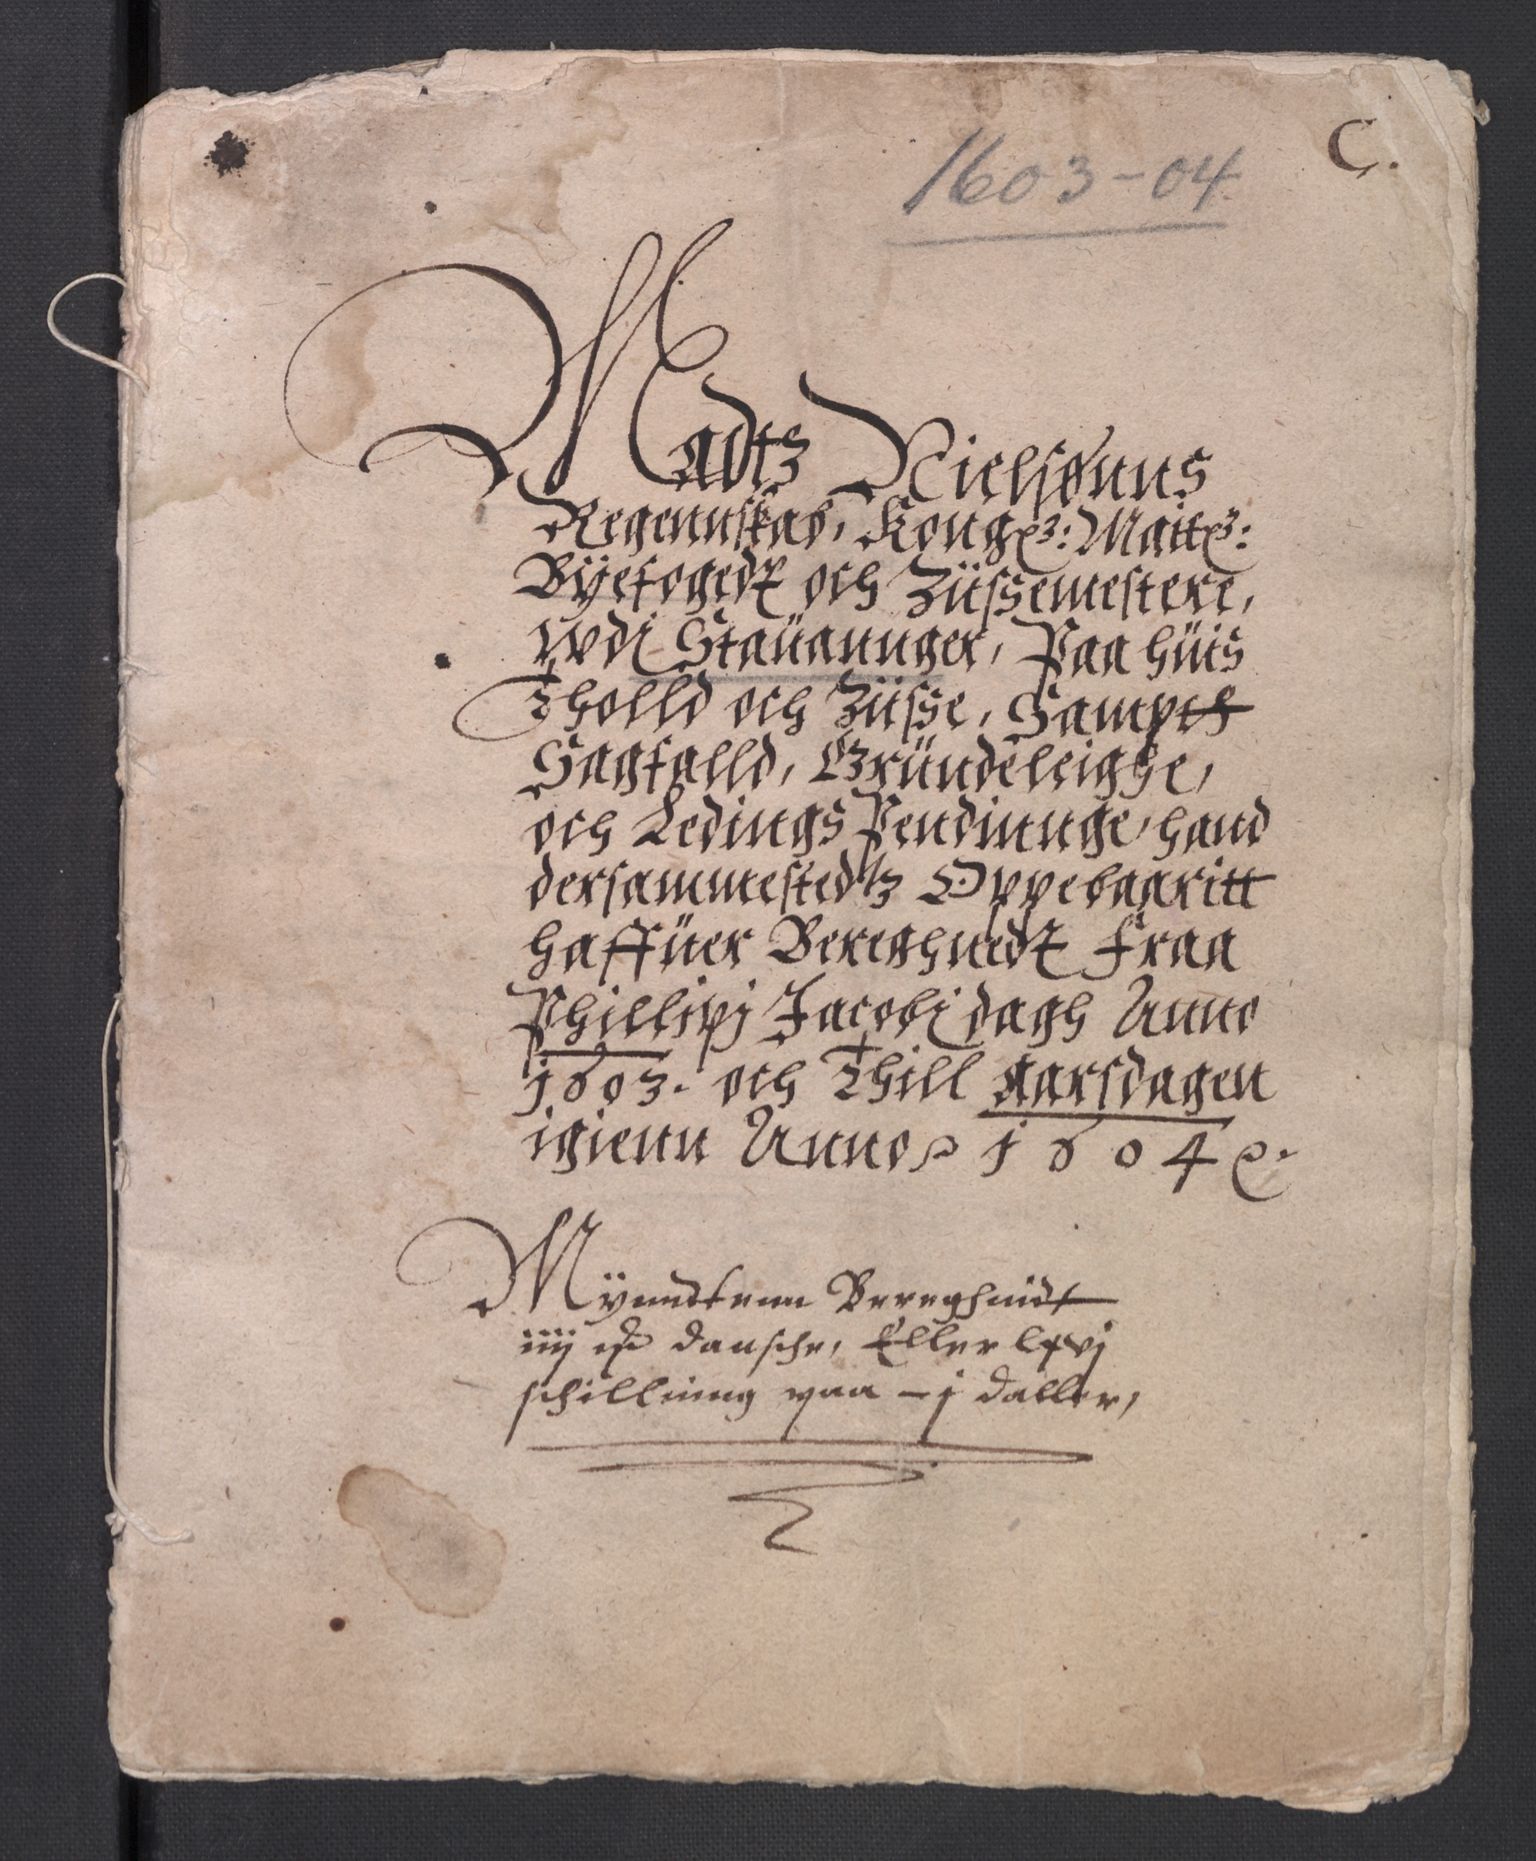 C.
1603-04
Madtz Nielsønns
Regennskab, Kong: Maitt:
Byefogedt och Züssemestere,
wdi Staüannger, Paa hüis
Tholld och Züsse, Sampt
Sagfalld, Gründeleighe,
och Ledings Pendinnge, hand
dersammestedtz Oppebaaritt
haffüer Bereghnedt Fraa
Phillipj Jacobi dagh Anno
1603. och Thill aarsdagen
igienn Anno 1604
Mÿnndtenn Bereghnidt
iiij dansche, Eller lxvj
schillinng paa -j daller,